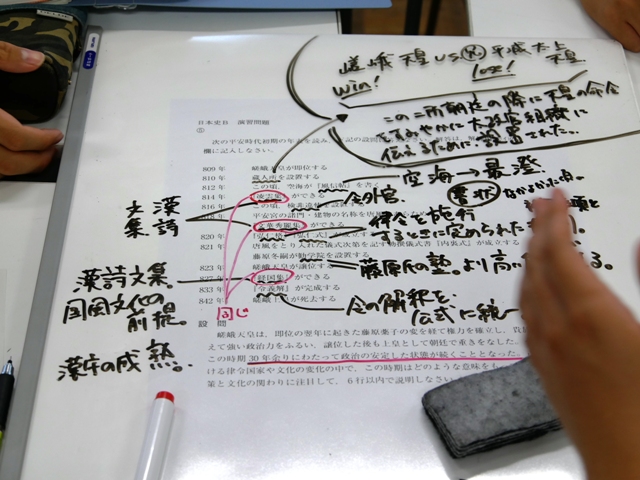 嵯峨天皇 VS 平城太上天皇
win!
lose!
この二所朝廷の際に天皇の命令
をすみやかに太政官組織に
伝えるために、設置された。
日本史B 演習問題
②
次の平安時代初期の年表を読み、
欄に記入しなさい。
809年 嵯峨天皇が即位する
810年 蔵人所を設置する
812年 この頃、空海が『風信帖』を書く
空海→最澄。
書状
814年 凌雲集ができる
816年 この頃、
令外官。
818年 平安宮の諸門・建物の名称を
漢詩
文集
文華秀麗集ができる
格式を施行
するときに定められた
820年 『弘仁格』『弘仁式』が
821年 唐風をとり入れた儀式次第を記す勅撰儀式書『内裏式』が成立する
藤原冬嗣が勧学院を設置する
藤原氏の塾。より高い
823年 嵯峨天皇が譲位する
827年 経国集ができる
833年 『令義解』が完成する
令の解釈を、
公式に統一
842年 嵯峨上皇が死去する
漢詩文集。
国風文化の
前提。
同じ
漢字の成熟。
設問
嵯峨天皇は、即位の翌年に起きた藤原薬子の変を経て権力を確立し、貴
えて強い政治力をふるい、譲位した後も上皇として朝廷で重きをなした。
この時期30年余りにわたって政治の安定した状態が続くこととなった。
ける律令国家や文化の変化の中で、この時期はどのような意味をも
策と文化の関わりに注目して、6行以内で説明しなさい